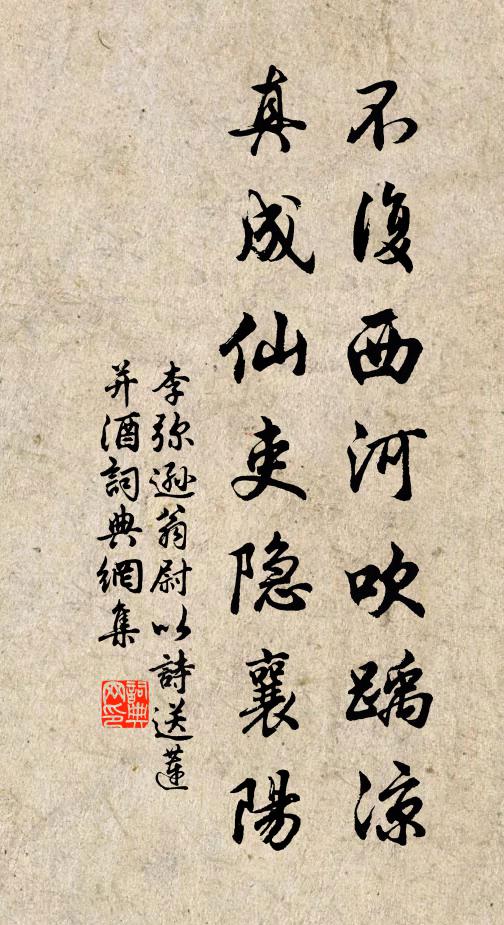 不復西河吹踽涼
真成仙吏隐襄陽
李弥遜翁尉以詩送蓮
并酒詞典網集
詞典网印